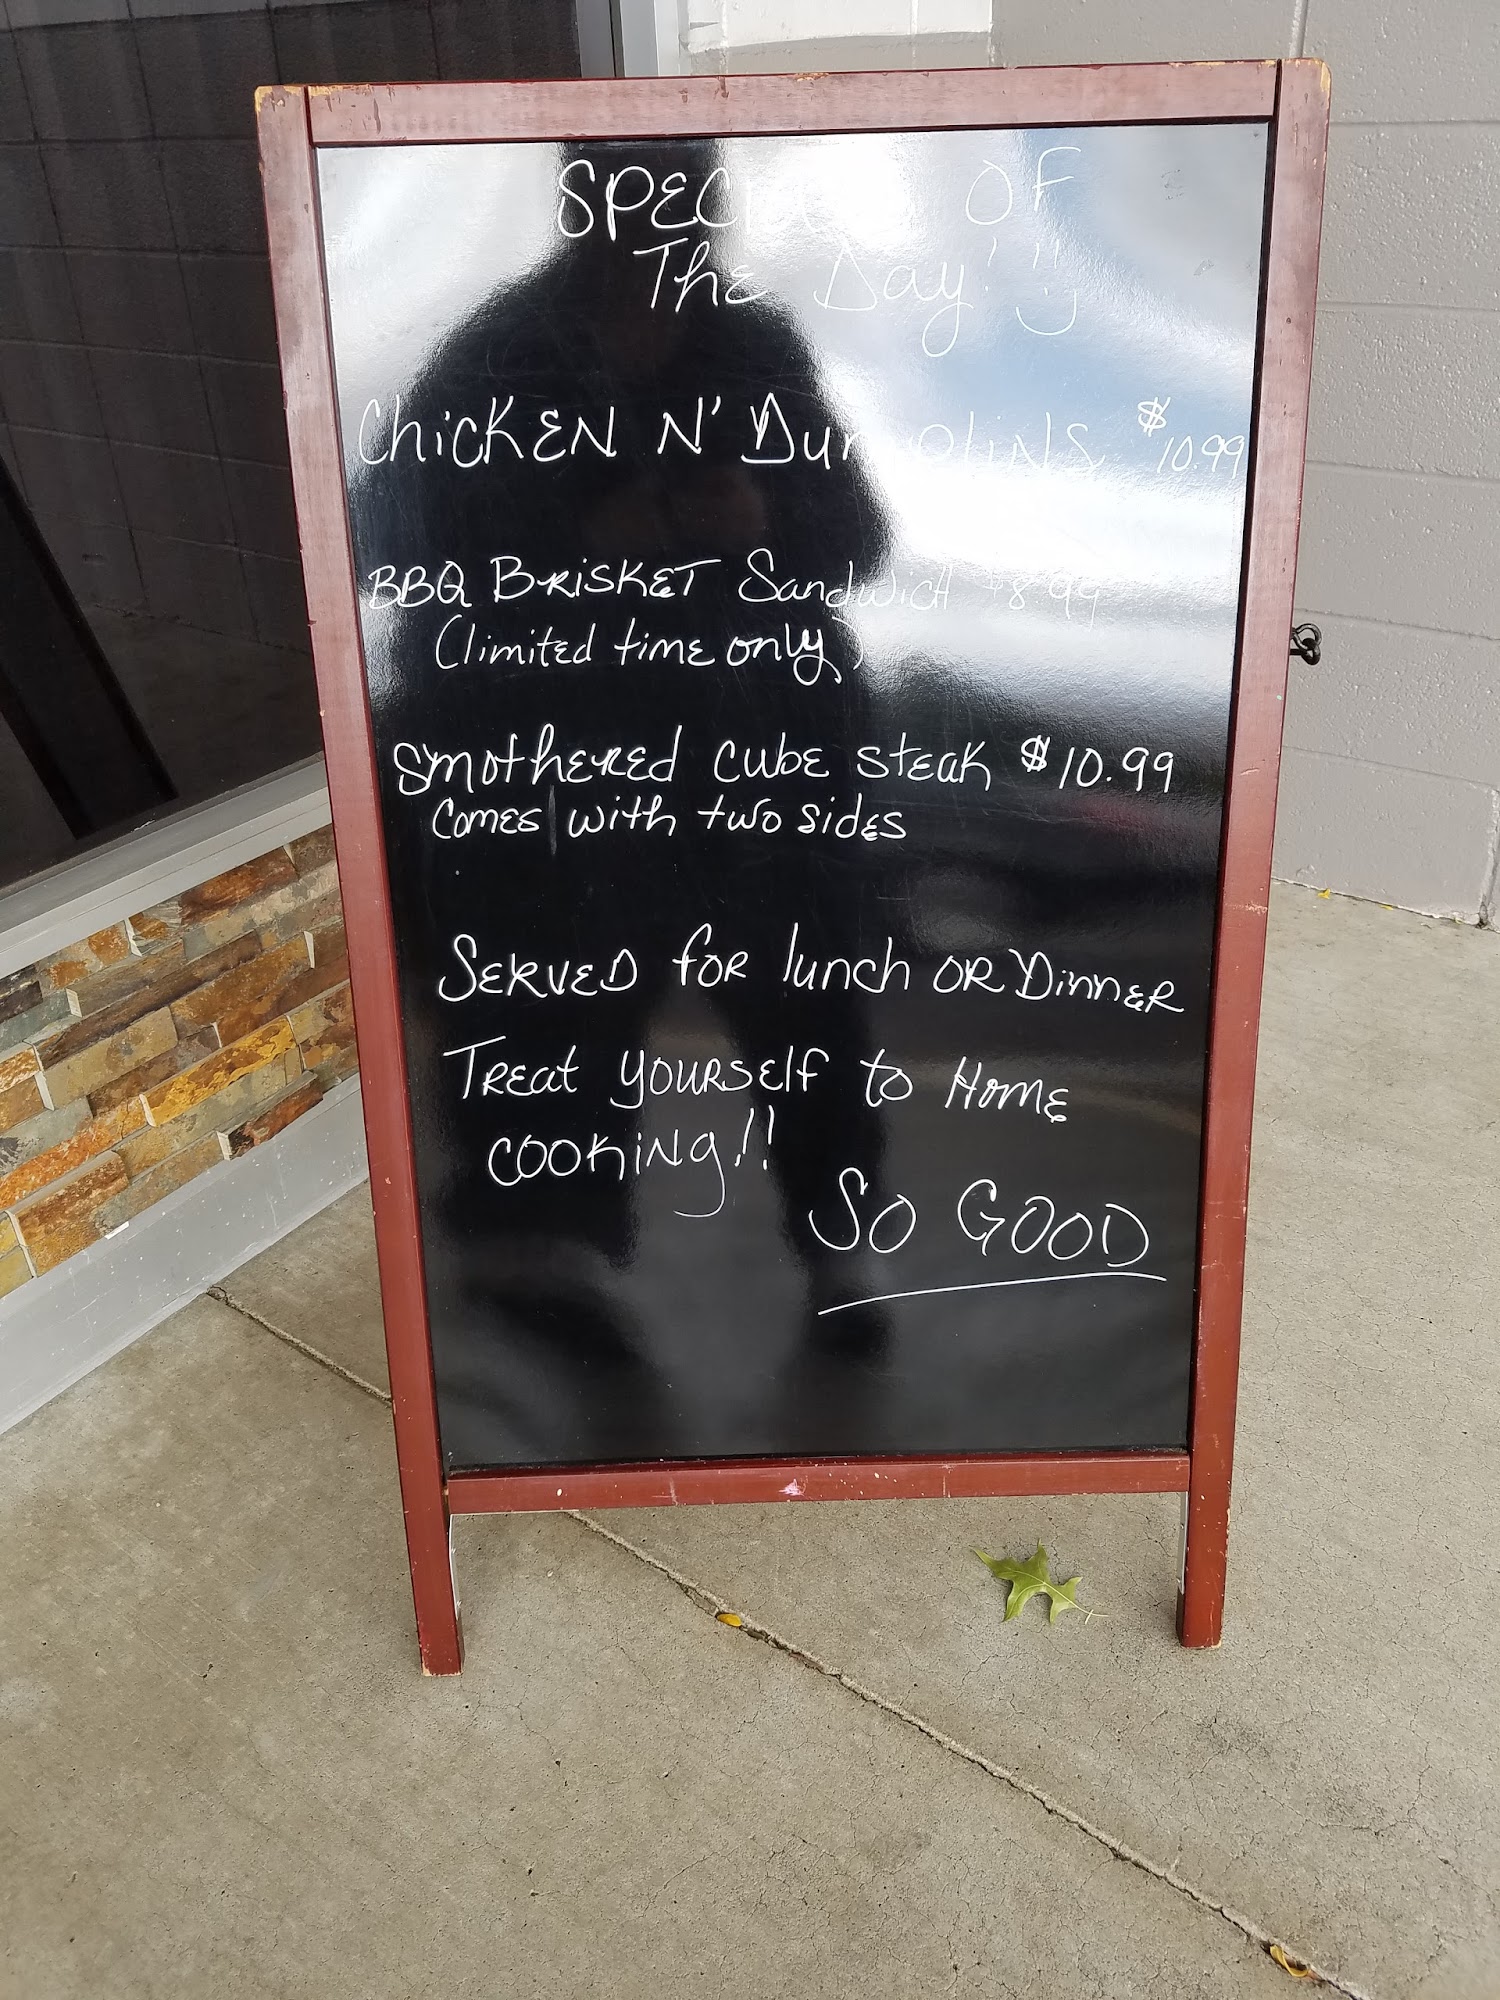 SPECIALS OF
The Day! :)
ChicKEN N' DumplinS $10.99
BBQ BRISKET Sandwich $8.99
(limited time only)
Smothered cube steak $10.99
Comes with two sides
SERVED for lunch OR Dinner
TREat yourself to Home
cooking!!
SO GOOD